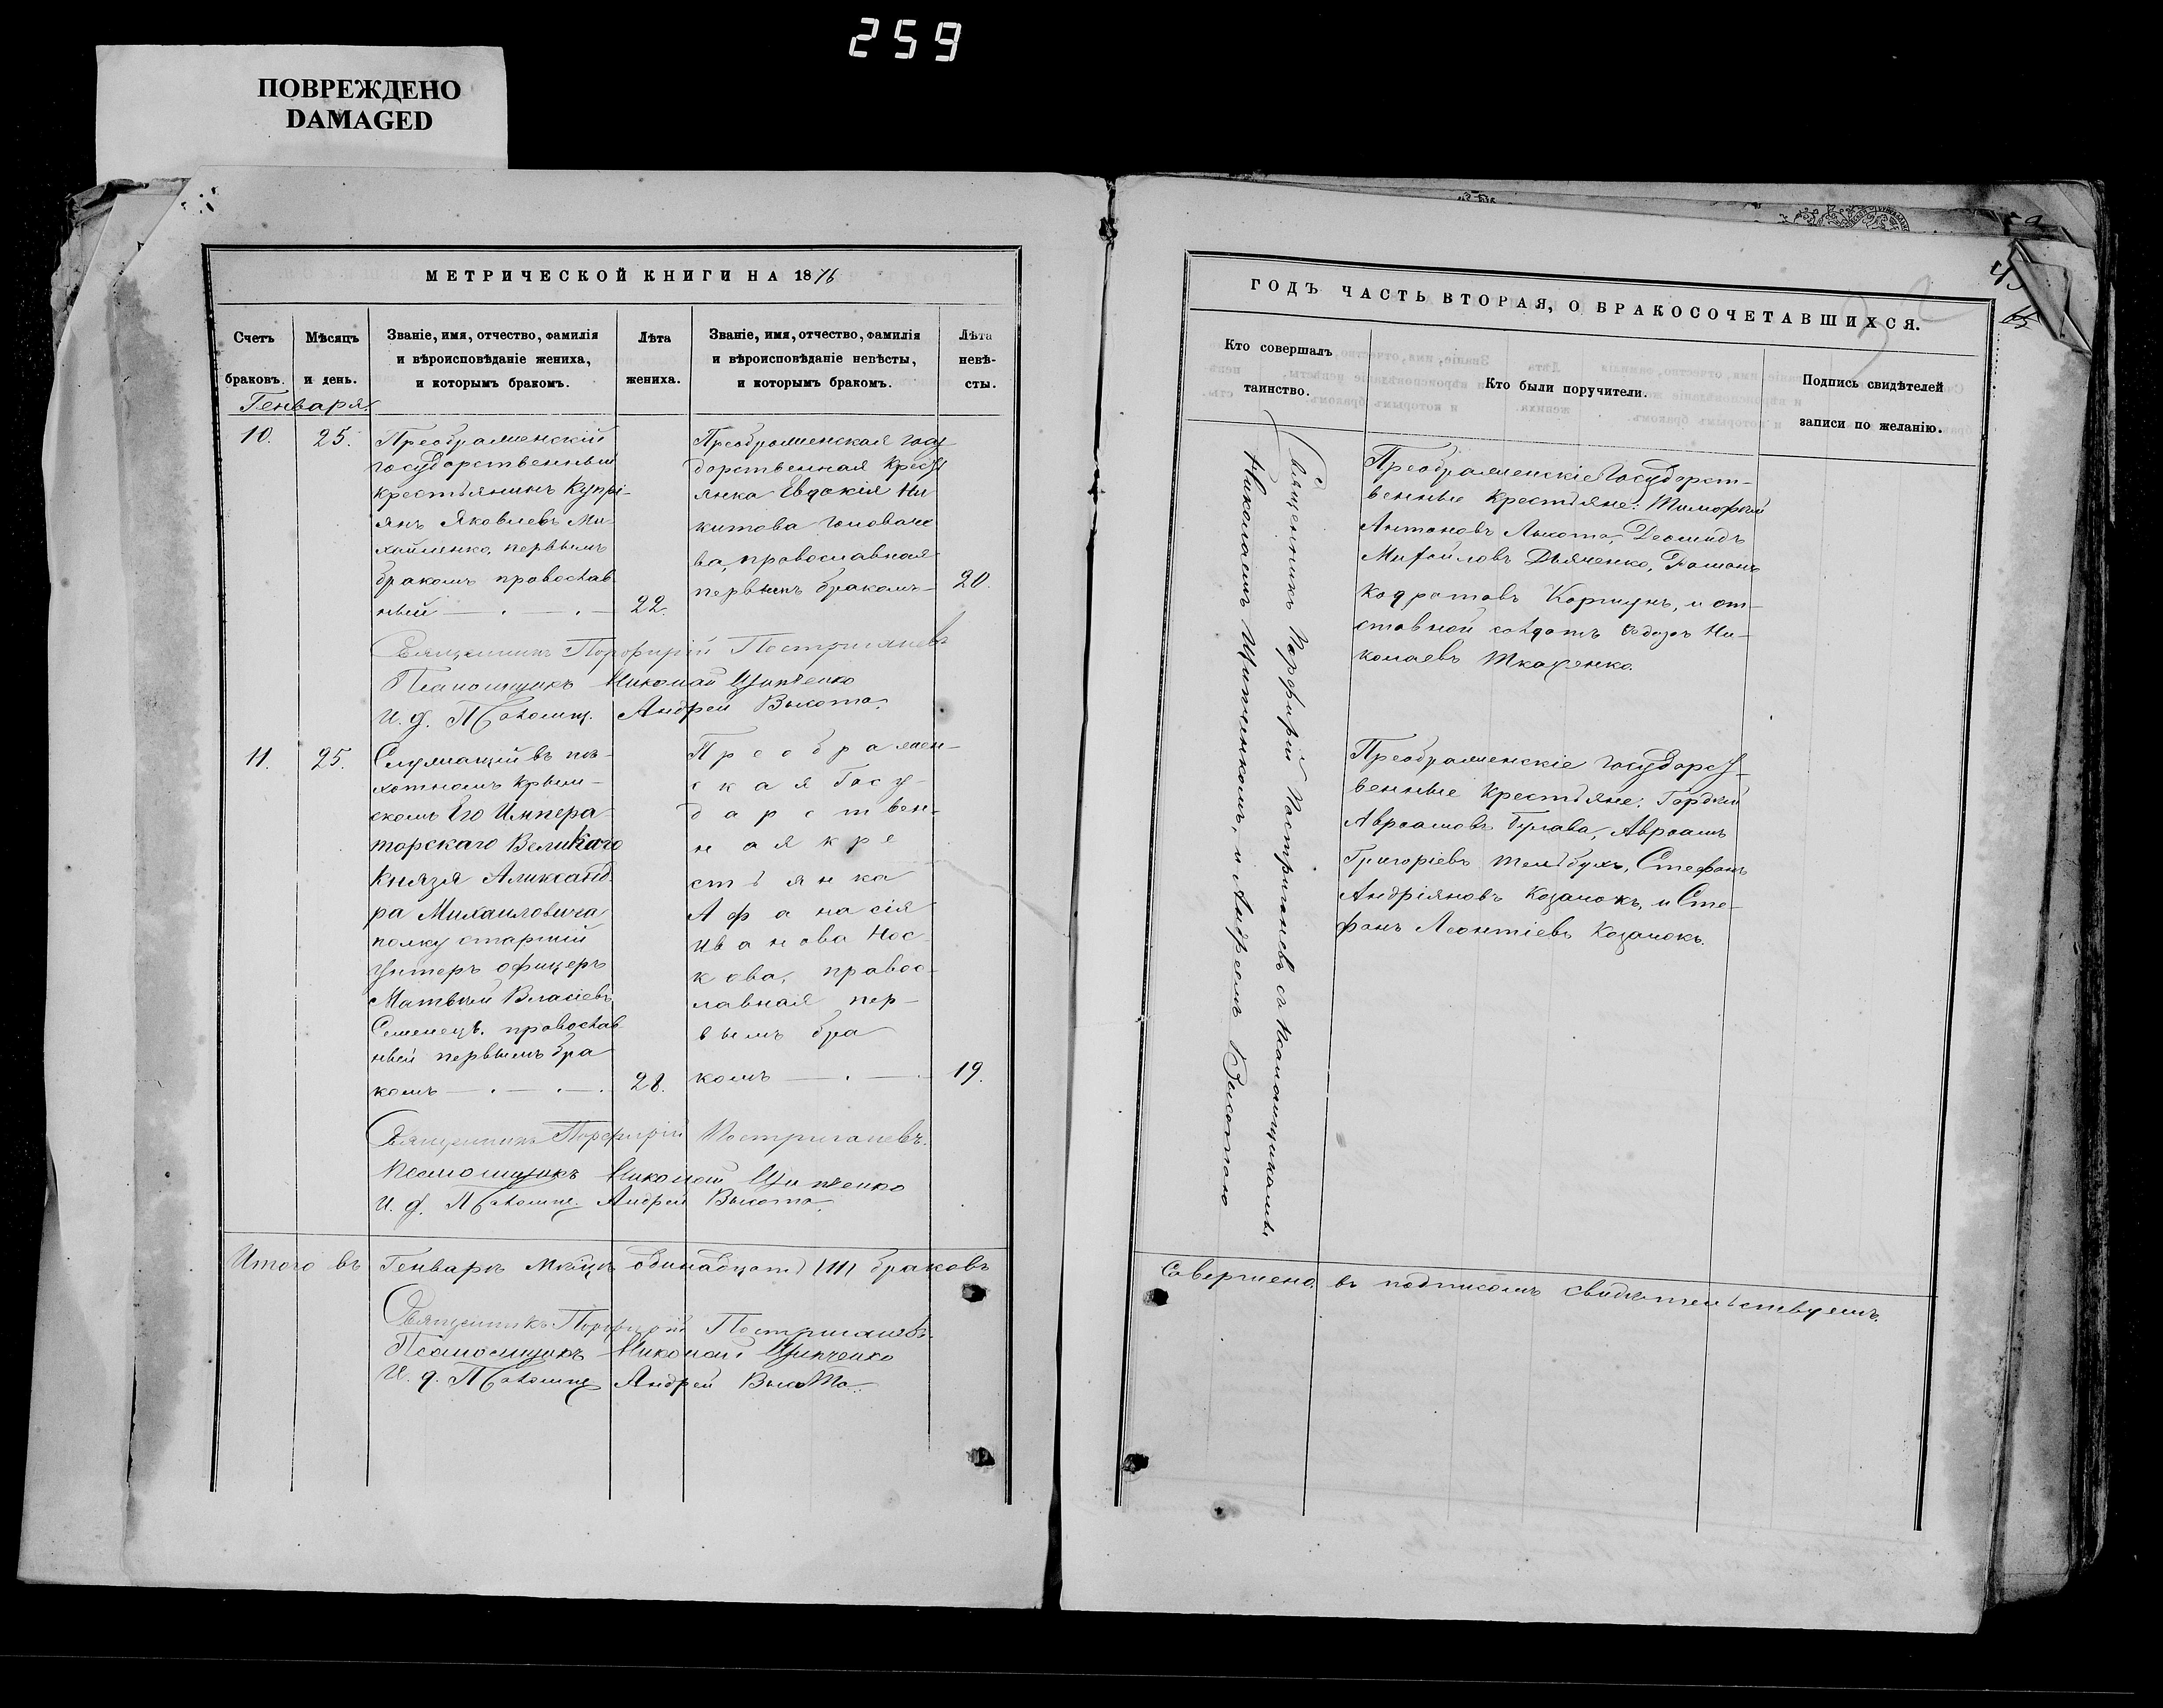 259
ПОВРЕЖДЕНО
DAMAGED
МЕТРИЧЕСКОЙ КНИГИ НА 1876
Счетъ браковъ.
Мѣсяцъ и день.
Званіе, имя, отчество, фамилія
и вѣроисповѣданіе жениха,
и которымъ бракомъ.
Лѣта жениха.
Званіе, имя, отчество, фамилія
и вѣроисповѣданіе невѣсты,
и которымъ бракомъ.
Лѣта невѣ-
сты.
Генваря.
10.
25.
Преображенскій
государственный
крестьянинъ Купрі-
янъ Яковлевъ Ми-
хайленко, первымъ
бракомъ православ
ный
22.
Преображенская госу
дарственная крестъ
янка Евдокія Ни
китова Головаче
ва, православная
первымъ бракомъ
20.
Священникъ Порфирій Постригановъ
Псаломщикъ Николай Щипченко
И. д. Псаломщ. Андрей Высота.
11.
25.
Служащій въ пѣ-
хотномъ Крым-
скомъ Его Импера
торскаго Великаго
Князя Аликсанд
ра Михаиловича
полку старшій
унтеръ офицеръ
Матвѣй Власіевъ
Семенецъ, православ
ный первымъ бра
комъ
28.
Преображен-
ская Госу-
дарствен-
ная кре
стьянка
Афанасія
Иванова Нос
кова, правос-
лавная пер-
вымъ бра
комъ
19.
Священникъ Порфирій Постригановъ.
Псаломщикъ Николай Щипченко
И. д. Псаломщ. Андрей Высота.
Итого въ Генварѣ Мѣцѣ одинадцать (11) браковъ
Священникъ Порфирій Постригановъ.
Псаломщикъ Николай Щипченко
И. д. Псаломщ Андрей Высота.
ГОДЪ ЧАСТЬ ВТОРАЯ, О БРАКОСОЧЕТАВШИХСЯ.
Кто совершалъ
таинство.
Кто были поручители.
Подпись свидѣтелей
записи по желанію.
Священникъ Порфирій Постригановъ съ Псаломщиками
Николаемъ Щипченкомъ, и Андреемъ Высотою
Преображенскіе Государст-
венные крестьяне: Тимофей
Антоновъ Лыкота, Деомидъ
Михайловъ Дьяченко, Романъ
Кодратовъ Коршунъ, и от-
ставной солдатъ Ни-
колаевъ Ткаченко.
Преображенскіе государст-
венные крестьяне: Гордѣй
Авраамовъ Булава, Авраамъ
Григоріевъ Стефанъ
Андріяновъ Козачокъ, и Сте-
фанъ Леонтіевъ Козачокъ.
Совершено. въ подписомъ свидѣтельствуемъ.